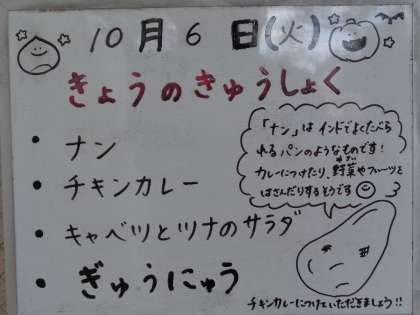 10月6日(火)
きょうのきゅうしょく
• ナン
• チキンカレー
• キャベツとツナのサラダ
• ぎゅうにゅう
「ナン」はインドでよくたべら
れるパンのようなものです!
カレーにつけたり、野菜やフルーツを
やさい
はさんだりするそうです
チキンカレーにつけていただきましょう!!